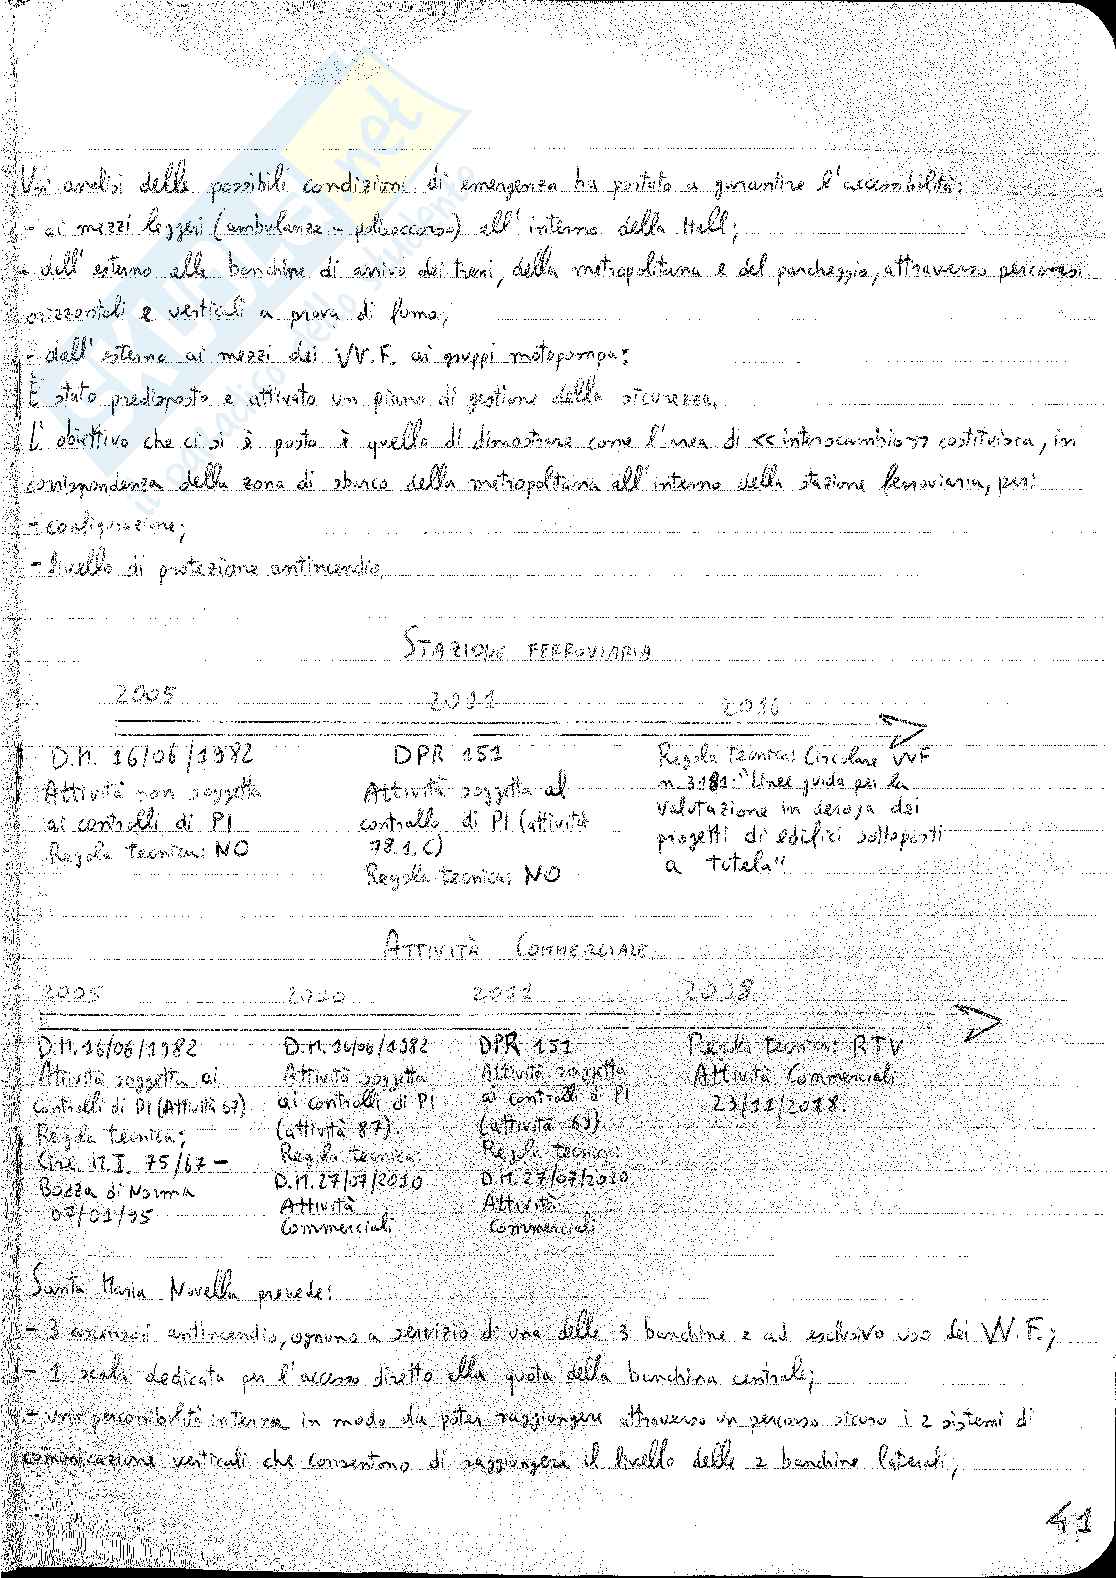 analisi delle possibili condizioni di emergenza ha portato a garantire l'accessibilità:
- ai mezzi leggeri (ambulanze - polisoccorso) all'interno della Hall;
- dall'esterno alle banchine di arrivo dei treni, della metropolitana e del parcheggio, attraverso percorsi
orizzontali e verticali a prova di fumo;
- dall'esterno ai mezzi dei VV.F. ai gruppi motopompa;
È stato predisposto e attivato un piano di gestione della sicurezza.
L'obiettivo che ci si è posto è quello di dimostrare come l'area di <<interscambio>> costituisca, in
corrispondenza della zona di sbarco della metropolitana all'interno della stazione ferroviaria, per:
- configurazione;
- livello di protezione antincendio.
STAZIONE FERROVIARIA
2005 2011 2016
D.M. 16/06/1982 DPR 151 Regola tecnica: Circolare VVF
Attività non soggetta Attività soggetta al n. 3181: "Linee guida per la
ai controlli di PI controllo di PI (attività valutazione in deroga dei
Regola tecnica: NO 78.1.C) progetti di edifici sottoposti
Regola tecnica: NO a tutela"
ATTIVITÀ COMMERCIALE
2005 2010 2011 2018
D.M. 16/06/1982 D.M. 16/06/1982 DPR 151 tecnica: RTV
Attività soggetta ai Attività soggetta Attività soggetta Attività Commerciali
controlli di PI (Attività 87) ai controlli di PI ai controlli di PI 23/11/2018.
Regola tecnica: (attività 87) (attività 69)
Circ. M.I. 75/67 - Regola tecnica: Regola tecnica:
Bozza di Norma D.M. 27/07/2010 D.M. 27/07/2010
07/01/95 Attività Attività
Commerciali Commerciali
Santa Maria Novella prevede:
- 3 ascensori antincendio, ognuno a servizio di una delle 3 banchine e ad esclusivo uso dei VV.F.;
- 1 scala dedicata per l'accesso diretto alla quota della banchina centrale;
- una percorribilità interna in modo da poter raggiungere attraverso un percorso sicuro i 2 sistemi di
comunicazione verticali che consentono di raggiungere il livello delle 2 banchine laterali;
41